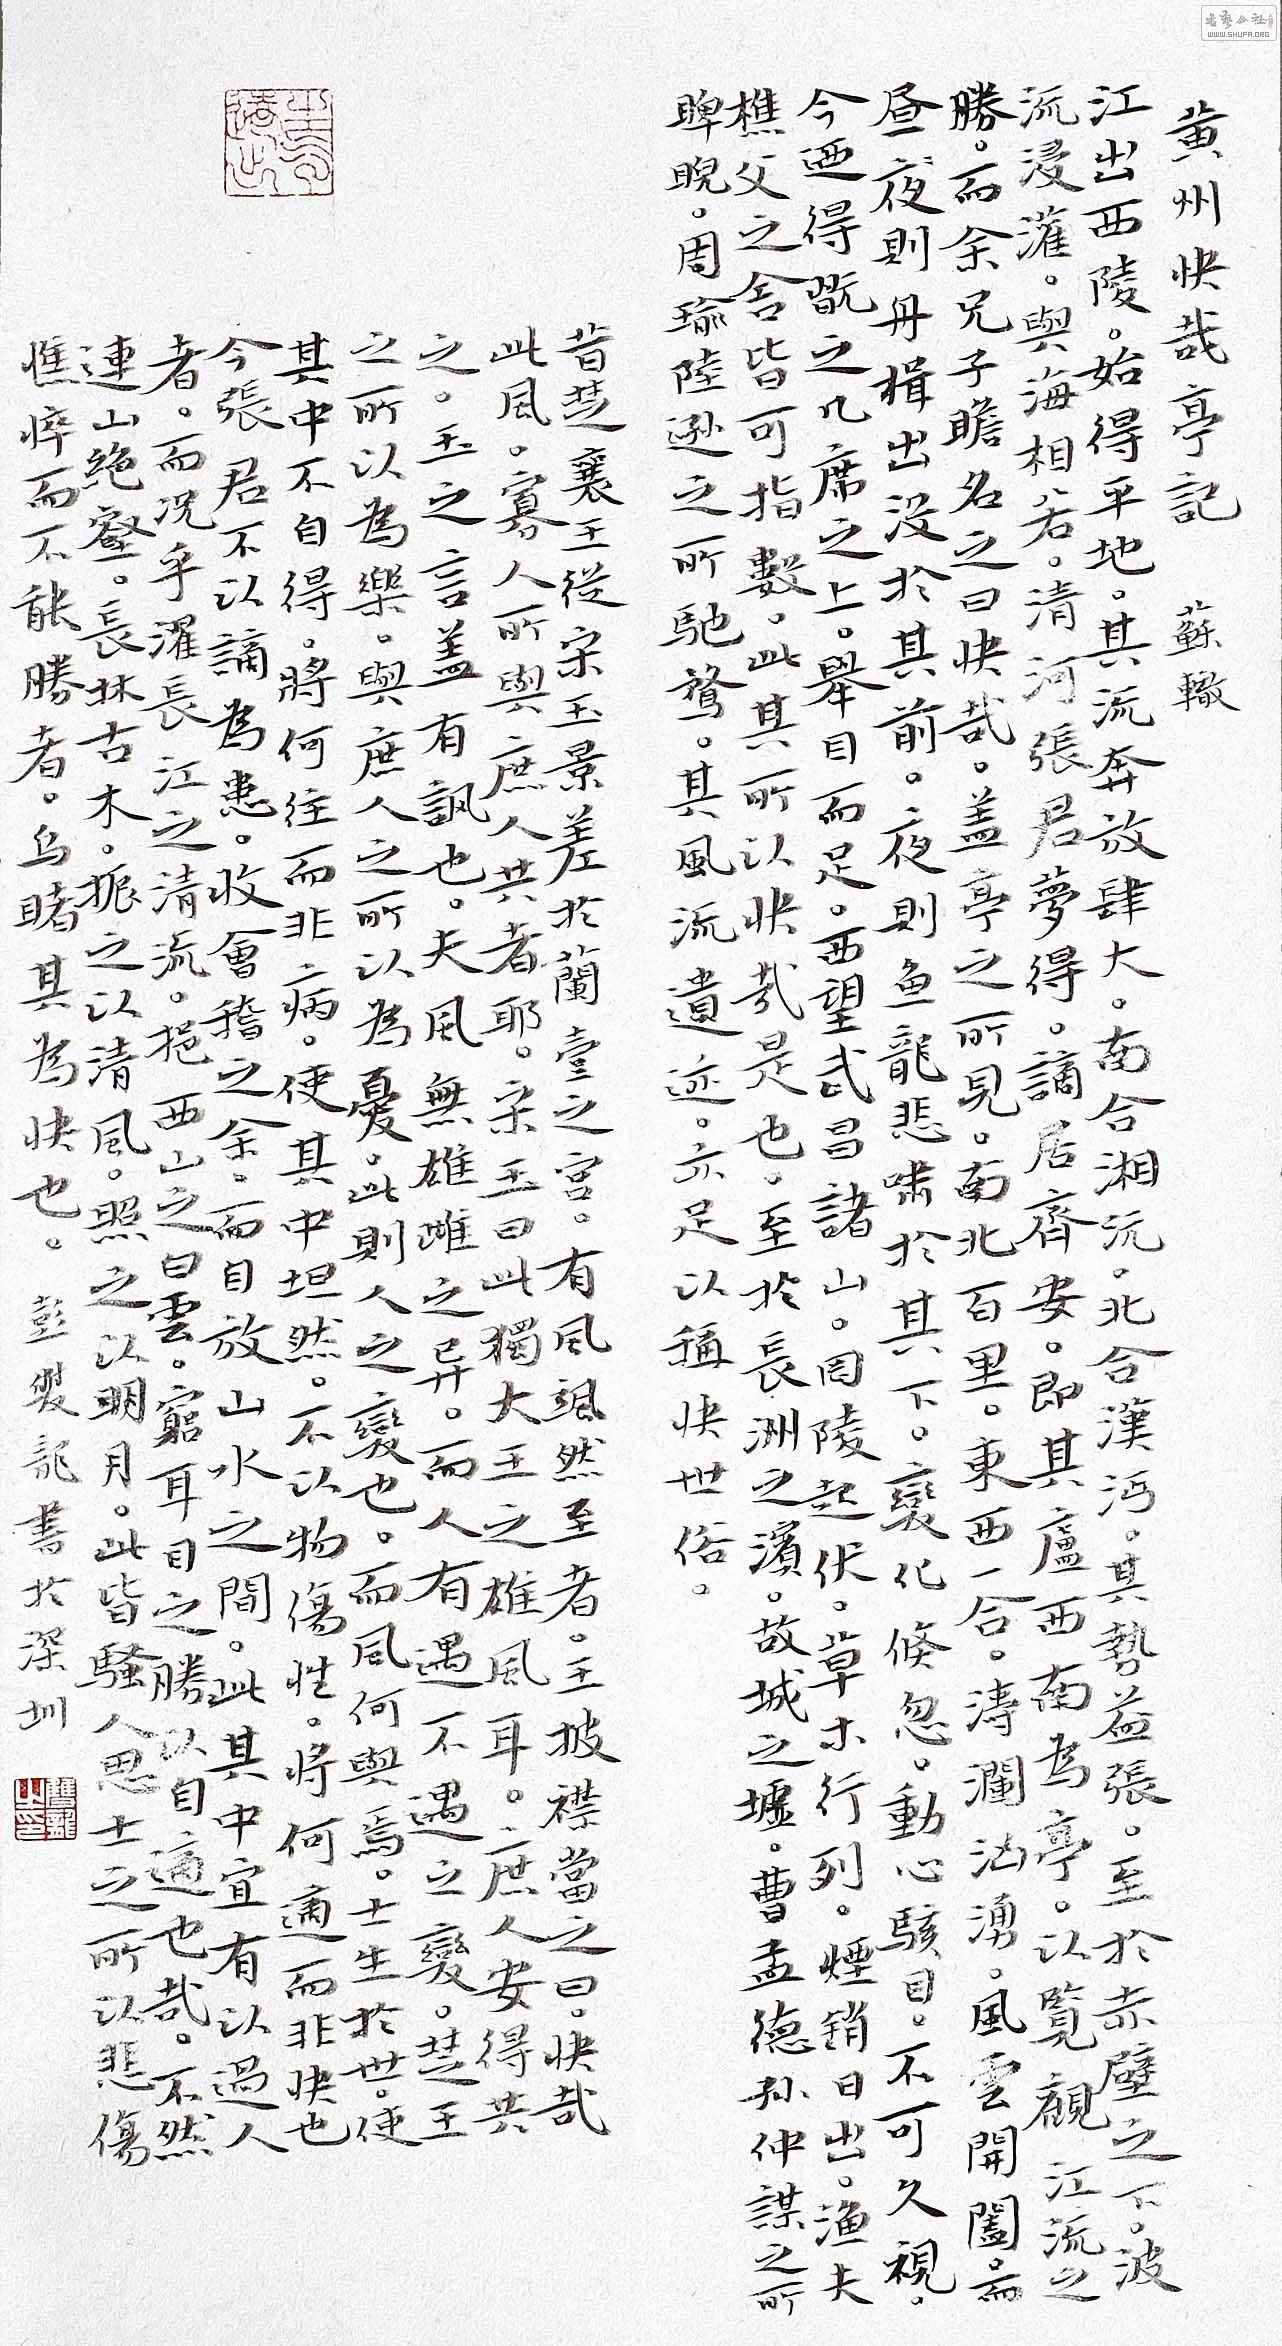 黄州快哉亭記 蘇轍
江出西陵。始得平地。其流奔放肆大。南合湘沅。北合漢沔。其勢益張。至於赤壁之下。波
流浸灌。與海相若。清河張君夢得。謫居齊安。即其廬西南為亭。以覽觀江流之
勝。而余兄子瞻名之曰快哉。盖亭之所見。南北百里。東西一合。濤瀾洶湧。風雲開闔。而
昼夜則舟楫出没於其前。夜則鱼龍悲啸於其下。變化倏忽。動心駭目。不可久視。
今迺得翫之几席之上。舉目而足。西望武昌諸山。岡陵起伏。草木行列。煙銷日出。漁夫
樵父之舍皆可指數。此其所以快哉是也。至於長洲之濱。故城之墟。曹孟德孫仲謀之所
睥睨。周瑜陸遜之所馳騖。其風流遺迹。亦足以稱快世俗。
昔楚襄王從宋玉景差於蘭臺之宫。有風颯然至者。王披襟當之曰。快哉
此風。寡人所與庶人共者耶。宋玉曰此獨大王之雄風耳。庶人安得共
之。玉之言盖有諷也。夫風無雄雌之异。而人有遇不遇之變。楚王
之所以為樂。與庶人之所以為憂。此則人之變也。而風何與焉。士生於世。使
其中不自得。將何往而非病。使其中坦然。不以物傷性。将何適而非快也
今張君不以謫為患。收會稽之余。而自放山水之間。此其中宜有以過人
者。而况乎濯長江之清流。挹西山之白雲。窮耳目之勝以自適也哉。不然
連山絶壑。長林古木。振之以清風。照之以明月。此皆騷人思士之所以悲傷
憔悴而不能勝者。乌睹其為快也。 彭雙龍書於深圳
雙龍之印
书艺公社
WWW.SHUFA.ORG